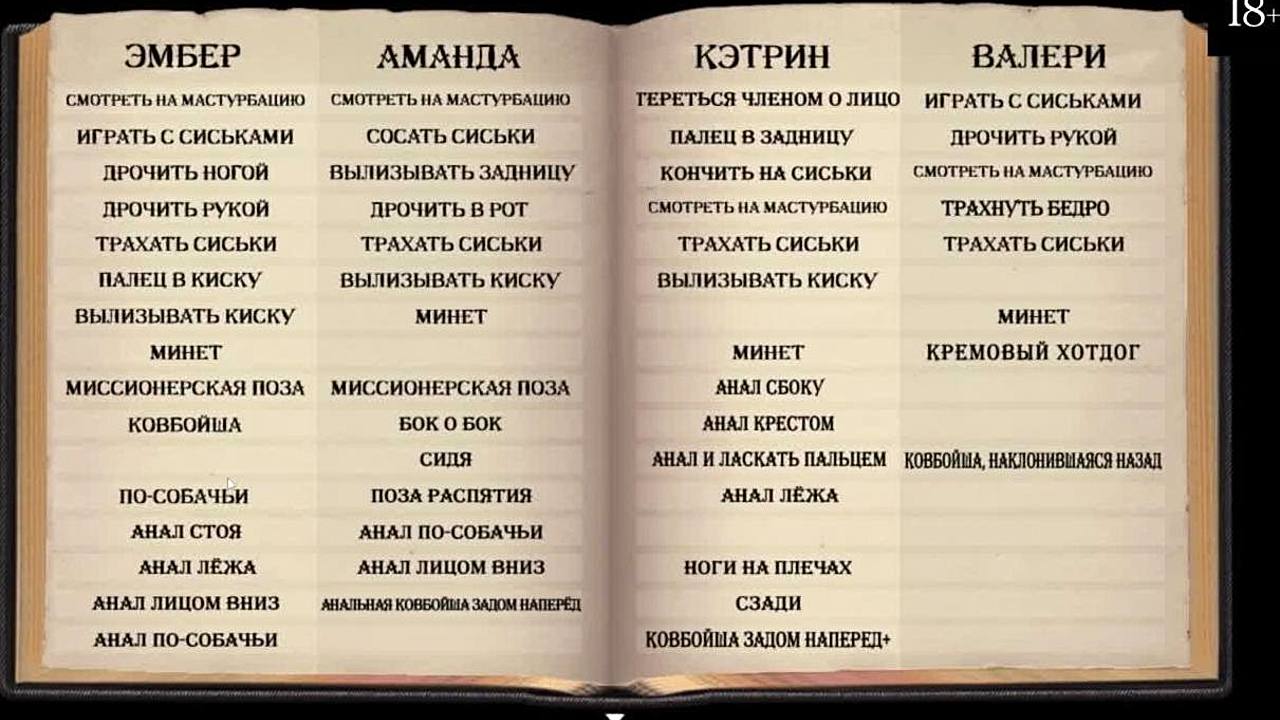 18+
ЭМБЕР
СМОТРЕТЬ НА МАСТУРБАЦИЮ
ИГРАТЬ С СИСЬКАМИ
ДРОЧИТЬ НОГОЙ
ДРОЧИТЬ РУКОЙ
ТРАХАТЬ СИСЬКИ
ПАЛЕЦ В КИСКУ
ВЫЛИЗЫВАТЬ КИСКУ
МИНЕТ
МИССИОНЕРСКАЯ ПОЗА
КОВБОЙША
ПО-СОБАЧЬИ
АНАЛ СТОЯ
АНАЛ ЛЁЖА
АНАЛ ЛИЦОМ ВНИЗ
АНАЛ ПО-СОБАЧЬИ
АМАНДА
СМОТРЕТЬ НА МАСТУРБАЦИЮ
СОСАТЬ СИСЬКИ
ВЫЛИЗЫВАТЬ ЗАДНИЦУ
ДРОЧИТЬ В РОТ
ТРАХАТЬ СИСЬКИ
ВЫЛИЗЫВАТЬ КИСКУ
МИНЕТ
МИССИОНЕРСКАЯ ПОЗА
БОК О БОК
СИДЯ
ПОЗА РАСПЯТИЯ
АНАЛ ПО-СОБАЧЬИ
АНАЛ ЛИЦОМ ВНИЗ
АНАЛЬНАЯ КОВБОЙША ЗАДОМ НАПЕРЁД
КЭТРИН
ТЕРЕТЬСЯ ЧЛЕНОМ О ЛИЦО
ПАЛЕЦ В ЗАДНИЦУ
КОНЧИТЬ НА СИСЬКИ
СМОТРЕТЬ НА МАСТУРБАЦИЮ
ТРАХАТЬ СИСЬКИ
ВЫЛИЗЫВАТЬ КИСКУ
МИНЕТ
АНАЛ СБОКУ
АНАЛ КРЕСТОМ
АНАЛ И ЛАСКАТЬ ПАЛЬЦЕМ
АНАЛ ЛЁЖА
НОГИ НА ПЛЕЧАХ
СЗАДИ
КОВБОЙША ЗАДОМ НАПЕРЕД+
ВАЛЕРИ
ИГРАТЬ С СИСЬКАМИ
ДРОЧИТЬ РУКОЙ
СМОТРЕТЬ НА МАСТУРБАЦИЮ
ТРАХНУТЬ БЕДРО
ТРАХАТЬ СИСЬКИ
МИНЕТ
КРЕМОВЫЙ ХОТДОГ
КОВБОЙША, НАКЛОНИВШАЯСЯ НАЗАД